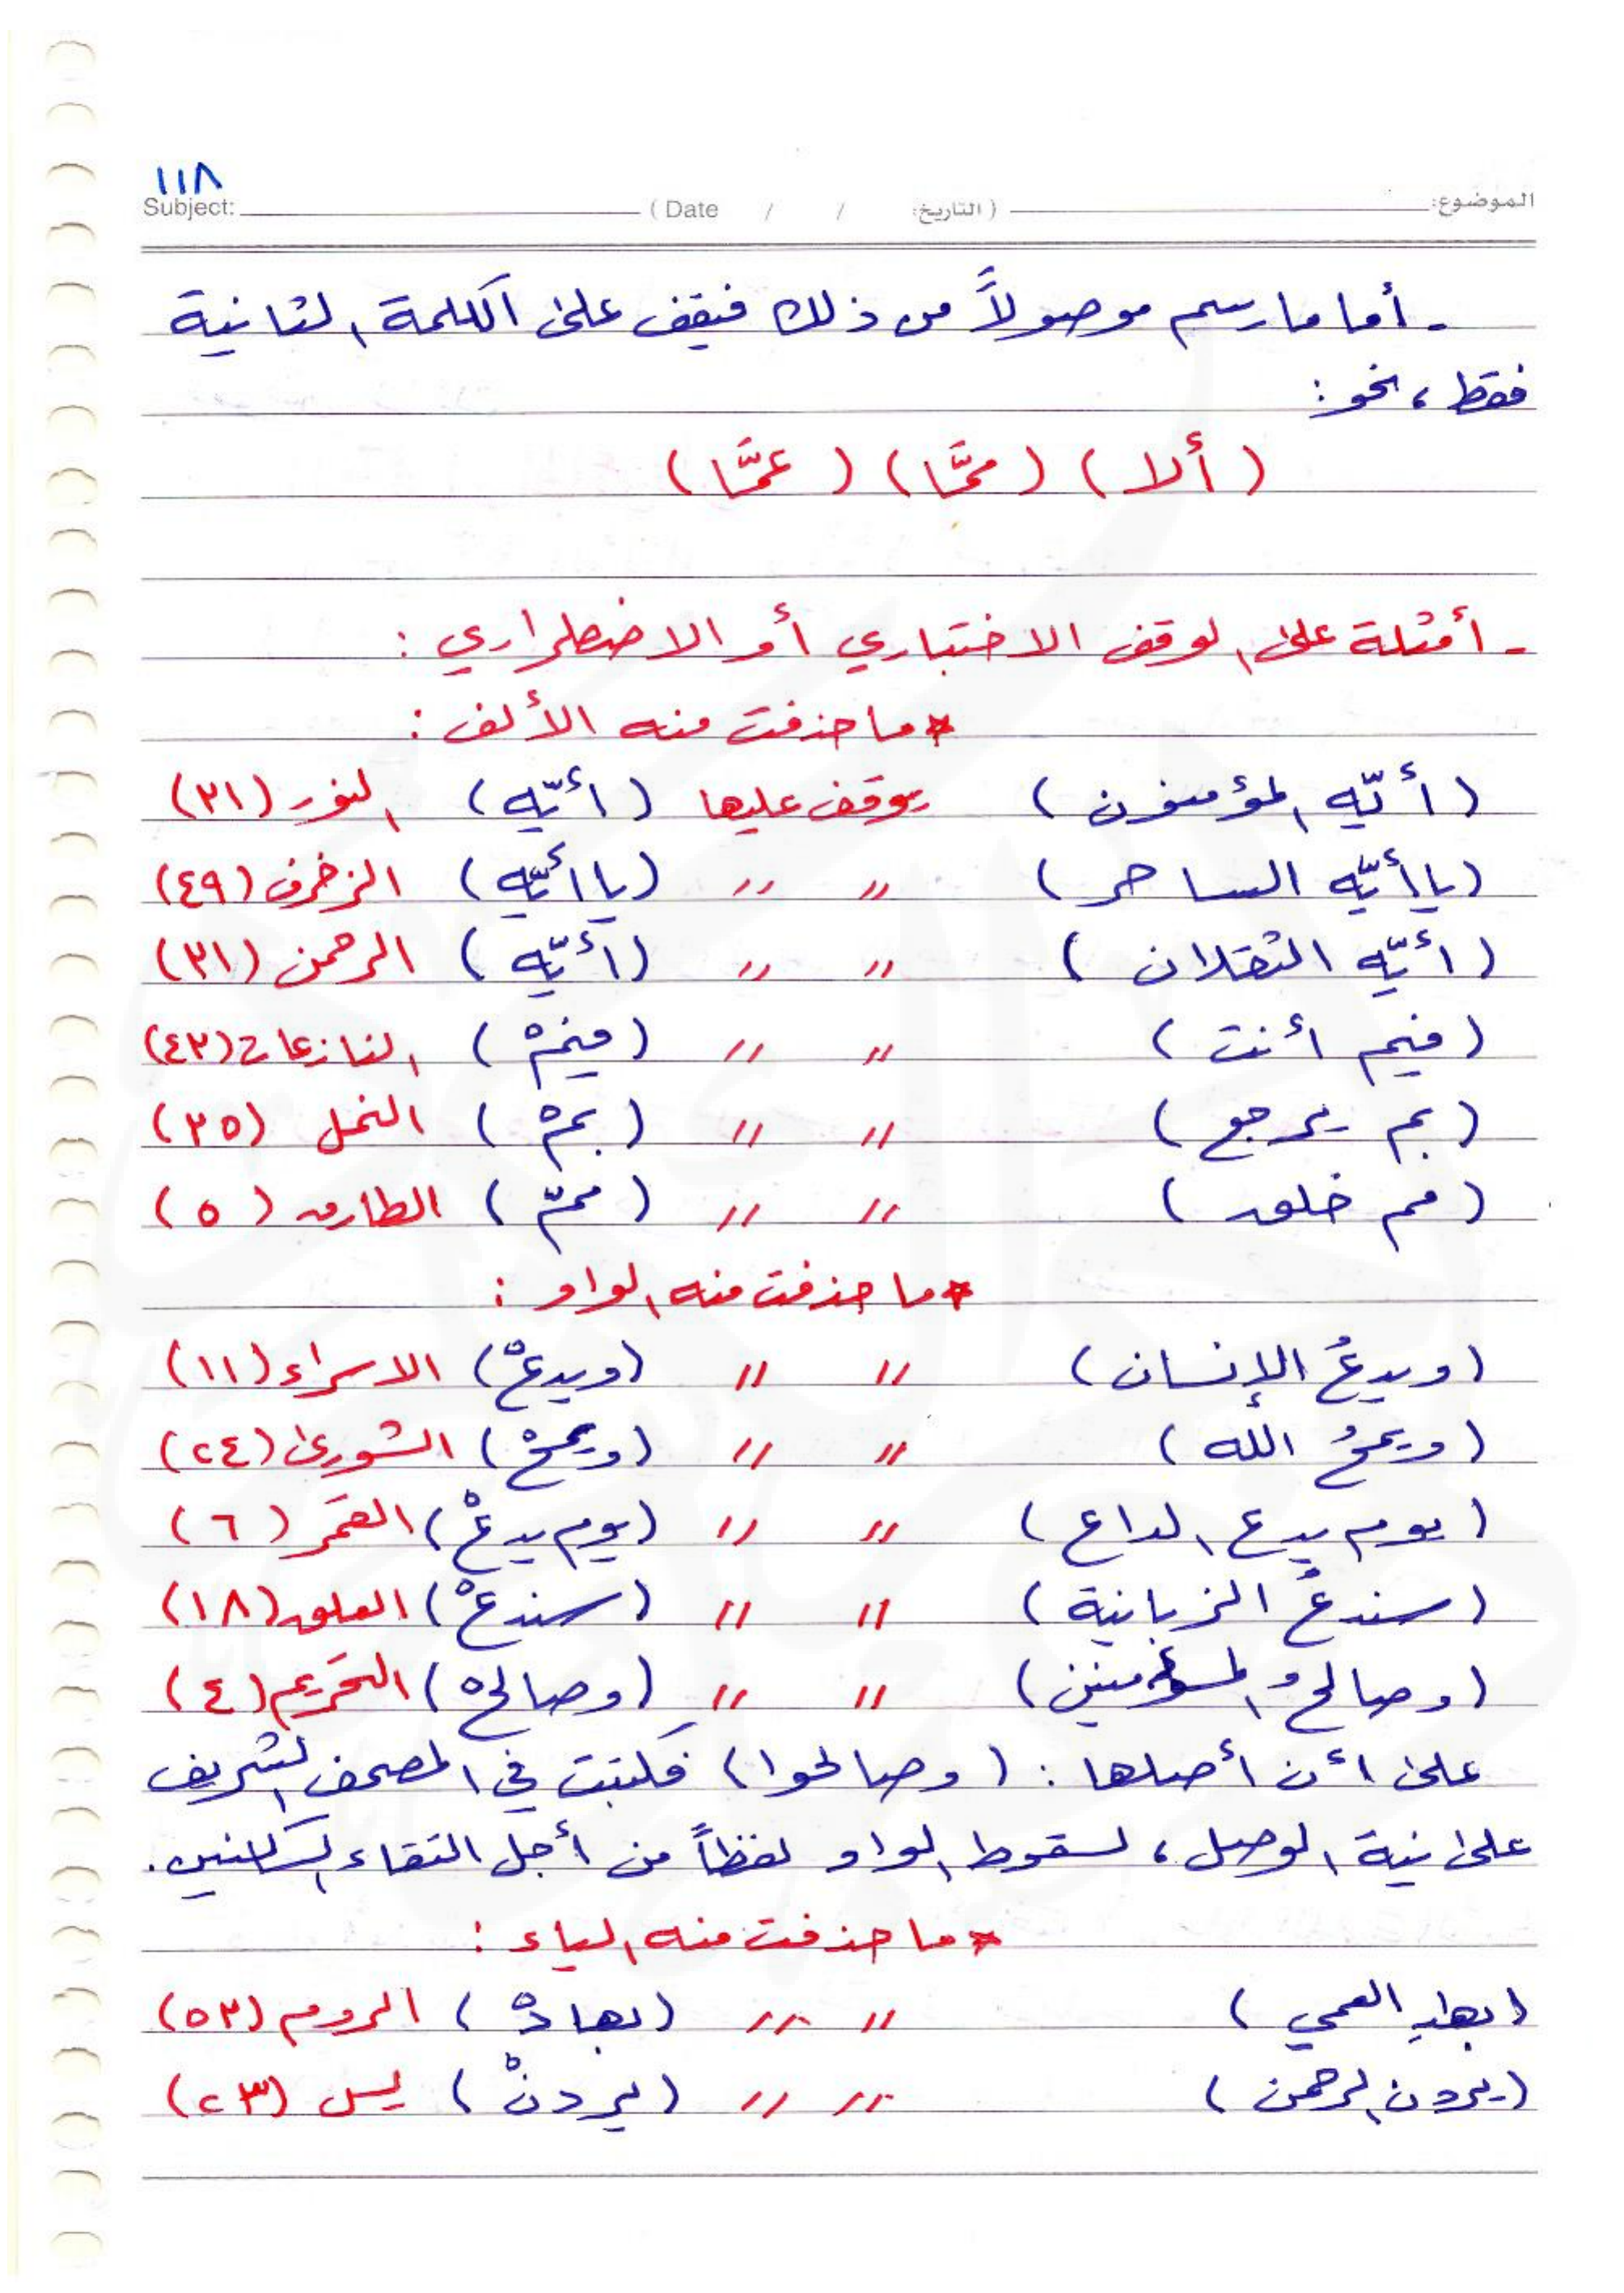 ١١٨
الموضوع: (التاريخ: / / Date) Subject:
- أما ما رسم موصولاً من ذلك فيقف على الكلمة الثانية
فقط ، نحو :
(ألا) (ممَّا) (عمَّا)
- أمثلة على الوقف الاختباري أو الاضطراري :
* ما حذفت منه الألف :
(أيّه المؤمنون) يوقف عليها (أيّه) النور (٣١)
(يا أيّه الساحر) " " (يا أيّه) الزخرف (٤٩)
(أيّه الثقلان) " " (أيّه) الرحمن (٣١)
(فيم أنت) " " (فيمْ) النازعات (٤٣)
(بم يرجع) " " (بمْ) النمل (٣٥)
(مم خلق) " " (ممّ) الطارق (٥)
* ما حذفت منه الواو :
(ويدعُ الإنسان) " " (ويدعْ) الاسراء (١١)
(ويمحُ الله) " " (ويمحْ) الشورى (٢٤)
(يوم يدع الداع) " " (يوم يدعْ) القمر (٦)
(سندعُ الزبانية) " " (سندعْ) العلق (١٨)
(وصالحُ المؤمنين) " " (وصالحْ) التحريم (٤)
على أن أصلها : (وصالحوا) فكتبت في المصحف الشريف
على نية الوصل ، لسقوط الواو لفظاً من أجل التقاء الساكنين .
* ما حذفت منه الياء :
(بهادِ العمي) " " (بهادْ) الروم (٥٣)
(يردن الرحمن) " " (يردنْ) يس (٢٣)